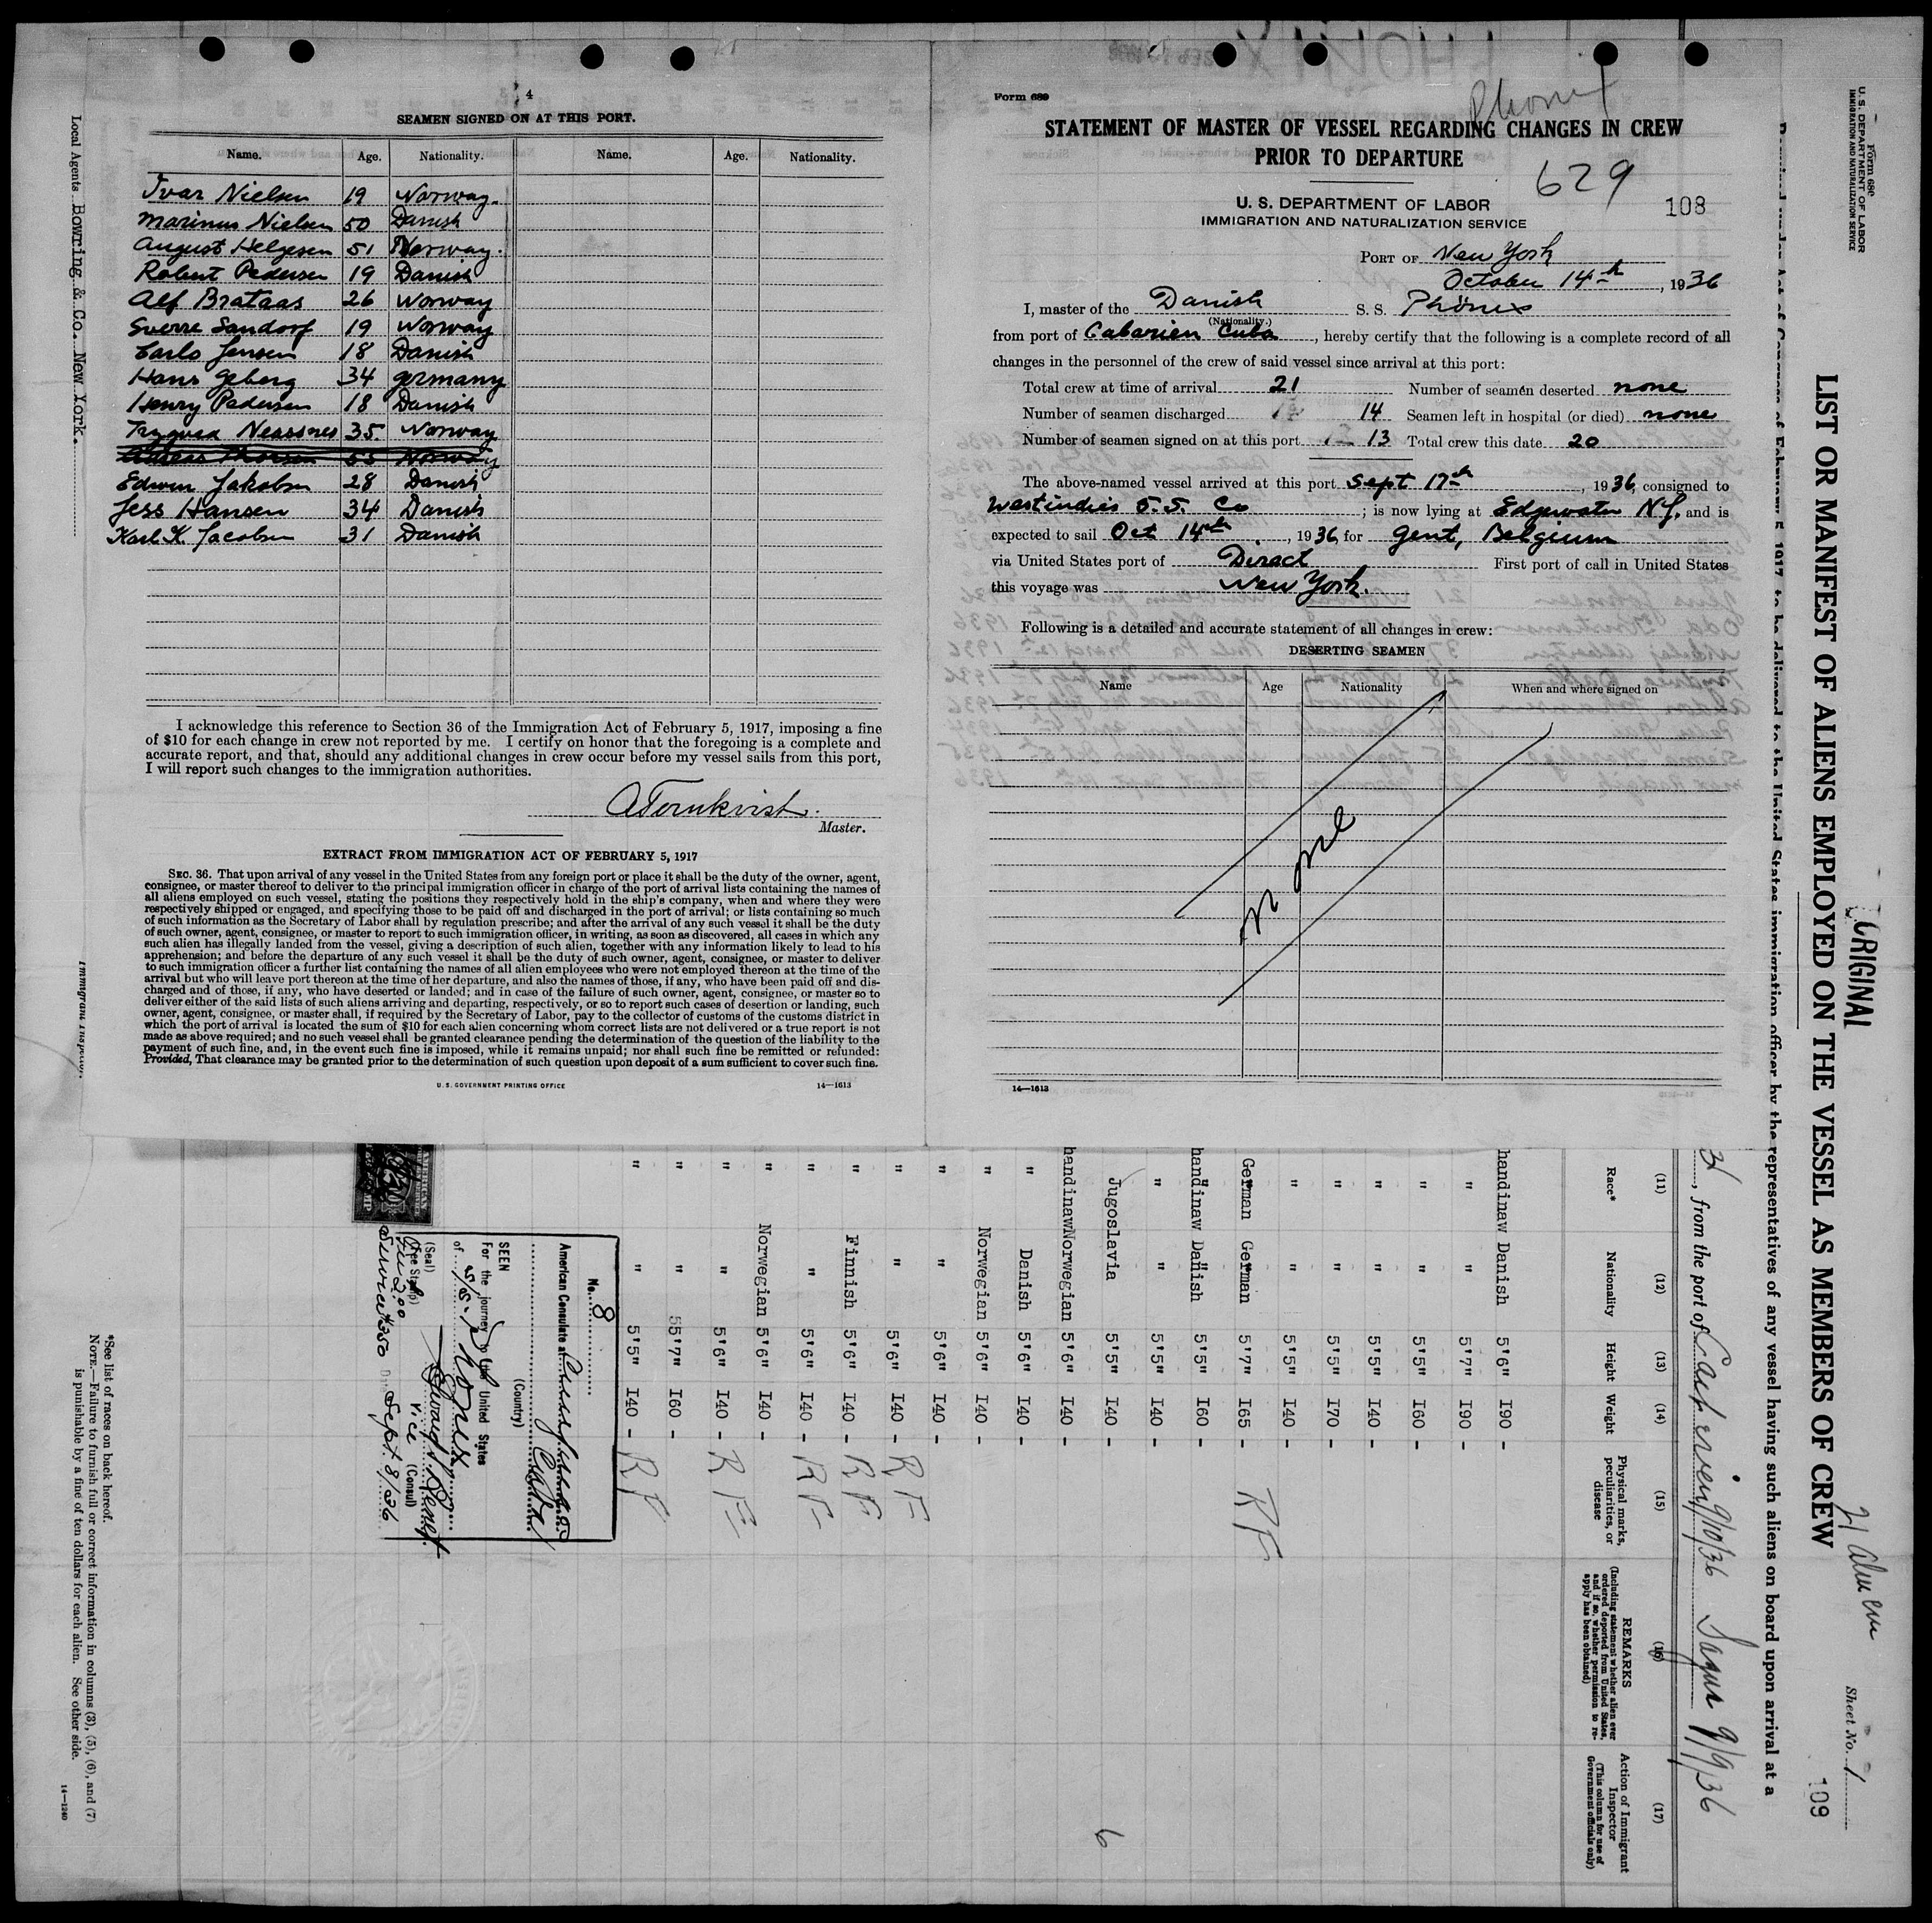 4
SEAMEN SIGNED ON AT THIS PORT.
Name. Age. Nationality. Name. Age. Nationality.
Ivar Nielsen 19 Norway.
Marinus Nielsen 50 Danish
August Helgesen 51 Norway.
Robert Pedersen 19 Danish
Alf Brataas 26 Norway
Sverre Sandorf 19 Norway
Carlo Jensen 18 Danish
Hans Geberg 34 Germany
Henry Pedersen 18 Danish
Neassnes 35. Norway
55 Norway
Edwin Jakobsen 28 Danish
Jess Hansen 34 Danish
Karl K. Jacobsen 31 Danish
I acknowledge this reference to Section 36 of the Immigration Act of February 5, 1917, imposing a fine
of $10 for each change in crew not reported by me. I certify on honor that the foregoing is a complete and
accurate report, and that, should any additional changes in crew occur before my vessel sails from this port,
I will report such changes to the immigration authorities.
ATornkvist.
Master.
EXTRACT FROM IMMIGRATION ACT OF FEBRUARY 5, 1917
SEC. 36. That upon arrival of any vessel in the United States from any foreign port or place it shall be the duty of the owner, agent,
consignee, or master thereof to deliver to the principal immigration officer in charge of the port of arrival lists containing the names of
all aliens employed on such vessel, stating the positions they respectively hold in the ship's company, when and where they were
respectively shipped or engaged, and specifying those to be paid off and discharged in the port of arrival; or lists containing so much
of such information as the Secretary of Labor shall by regulation prescribe; and after the arrival of any such vessel it shall be the duty
of such owner, agent, consignee, or master to report to such immigration officer, in writing, as soon as discovered, all cases in which any
such alien has illegally landed from the vessel, giving a description of such alien, together with any information likely to lead to his
apprehension; and before the departure of any such vessel it shall be the duty of such owner, agent, consignee, or master to deliver
to such immigration officer a further list containing the names of all alien employees who were not employed thereon at the time of the
arrival but who will leave port thereon at the time of her departure, and also the names of those, if any, who have been paid off and dis-
charged and of those, if any, who have deserted or landed; and in case of the failure of such owner, agent, consignee, or master so to
deliver either of the said lists of such aliens arriving and departing, respectively, or so to report such cases of desertion or landing, such
owner, agent, consignee, or master shall, if required by the Secretary of Labor, pay to the collector of customs of the customs district in
which the port of arrival is located the sum of $10 for each alien concerning whom correct lists are not delivered or a true report is not
made as above required; and no such vessel shall be granted clearance pending the determination of the question of the liability to the
payment of such fine, and, in the event such fine is imposed, while it remains unpaid; nor shall such fine be remitted or refunded:
Provided, That clearance may be granted prior to the determination of such question upon deposit of a sum sufficient to cover such fine.
U. S. GOVERNMENT PRINTING OFFICE 14—1613
Local Agents Bowring & Co. New York.
Immigrant Inspector.
Form 689
Phönix
STATEMENT OF MASTER OF VESSEL REGARDING CHANGES IN CREW
PRIOR TO DEPARTURE
629
108
U. S. DEPARTMENT OF LABOR
IMMIGRATION AND NATURALIZATION SERVICE
PORT OF New York
October 14th, 1936
I, master of the Danish S. S. Phönix
(Nationality.)
from port of Cabarien Cuba, hereby certify that the following is a complete record of all
changes in the personnel of the crew of said vessel since arrival at this port:
Total crew at time of arrival 21 Number of seamen deserted none
Number of seamen discharged 14 Seamen left in hospital (or died) none
Number of seamen signed on at this port 13 Total crew this date 20
The above-named vessel arrived at this port Sept 17th, 1936, consigned to
Westindies S.S. Co; is now lying at Edgewater N.J. and is
expected to sail Oct 14th, 1936, for Gent, Belgium
via United States port of Direct First port of call in United States
this voyage was New York.
Following is a detailed and accurate statement of all changes in crew:
DESERTING SEAMEN
Name Age Nationality When and where signed on
None
14—1613
Form 680
U. S. DEPARTMENT OF LABOR
IMMIGRATION AND NATURALIZATION SERVICE
ORIGINAL
21 Aliens
Sheet No. 1
109
LIST OR MANIFEST OF ALIENS EMPLOYED ON THE VESSEL AS MEMBERS OF CREW
Required under Act of Congress of February 5, 1917, to be delivered to the United States immigration officer by the representatives of any vessel having such aliens on board upon arrival at a
, from the port of 9/10/36 Sagua 9/9/36
(11) (12) (13) (14) (15) (16) (17)
Race* Nationality Height Weight Physical marks, peculiarities, or disease REMARKS (Including statement whether alien ever ordered deported from United States, and if so, whether permission to re-apply has been obtained) Action of Immigrant Inspector (This column for use of Government officials only)
handinaw Danish 5'6" I90 -
" " 5'7" I90 -
" " 5'5" I60 -
" " 5'5" I40 -
" " 5'5" I70 -
" " 5'5" I40 -
German German 5'7" I65 - RF
handinaw Danish 5'5" I60 -
" " 5'5" I40 -
Jugoslavia 5'5" I40 - 6
handinaw Norwegian 5'6" I40 -
" Danish 5'6" I40 -
" Norwegian 5'6" I40 -
" " 5'6" I40 -
" " 5'6" I40 - RF
" Finnish 5'6" I40 - RF
" " 5'6" I40 - RF
" Norwegian 5'6" I40 -
" " 5'6" I40 - RF
" " 55'7" I60 -
" " 5'5" I40 - RF
No. 8
American Consulate at Cuba
(Country)
SEEN
For the journey to the United States
of s/s. Phönix
Vice (Consul)
(Seal)
(Fee Stamp)
Service # 350
Sept. 8/36
*See list of races on back hereof.
NOTE.—Failure to furnish full or correct information in columns (3), (5), (6), and (7)
is punishable by a fine of ten dollars for each alien. See other side.
14—1240